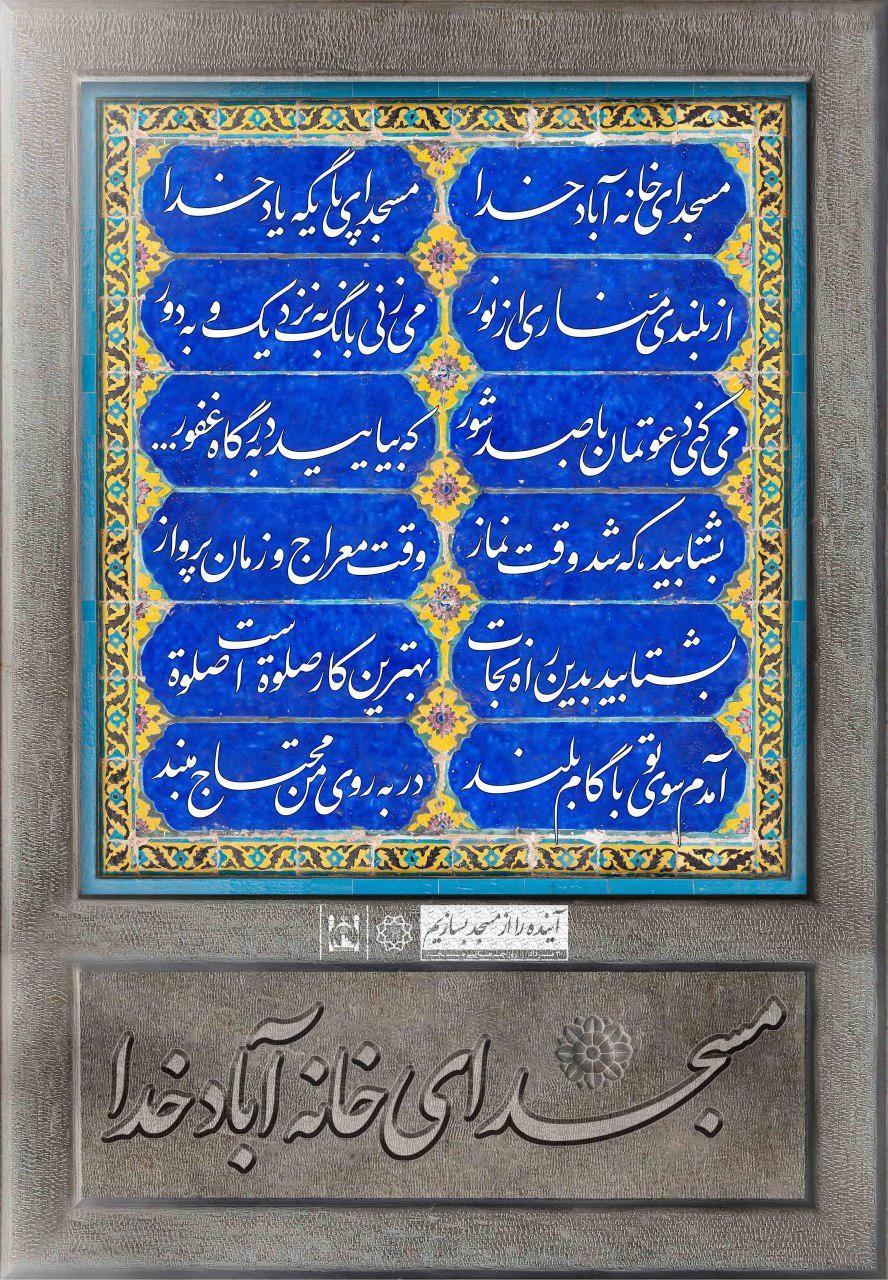 مسجد ای خانه آباد خدا
مسجد ای پایگه یاد خدا
از بلندی مناری از نور
می زنی بانگ به نزدیک و به دور
می کنی دعوتمان با صد شور
که بیایید به درگاه غفور...
بشتابید، که شد وقت نماز
وقت معراج و زمان پرواز
بشتابید بدین راه نجات
بهترین کار صلوة است صلوة
آمدم سوی تو با گام بلند
در به روی من محتاج مبند
آینده را از مسجد بسازیم
مسجد ای خانه آباد خدا